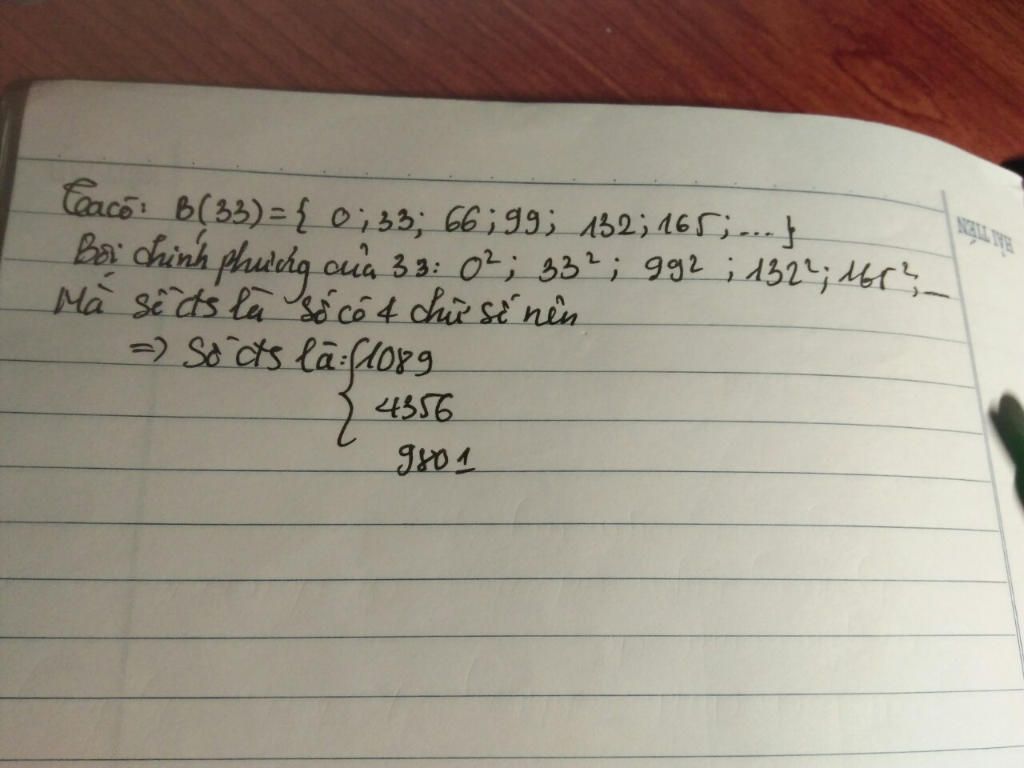 Ta có: B(33) = { 0 ; 33 ; 66 ; 99 ; 132 ; 165 ; ... }
Bội chính phương của 33: 0² ; 33² ; 99² ; 132² ; 165² ; ...
Mà số cts là số có 4 chữ số nên
=> Số cts là: { 1089
4356
9801
HẢI TIẾN